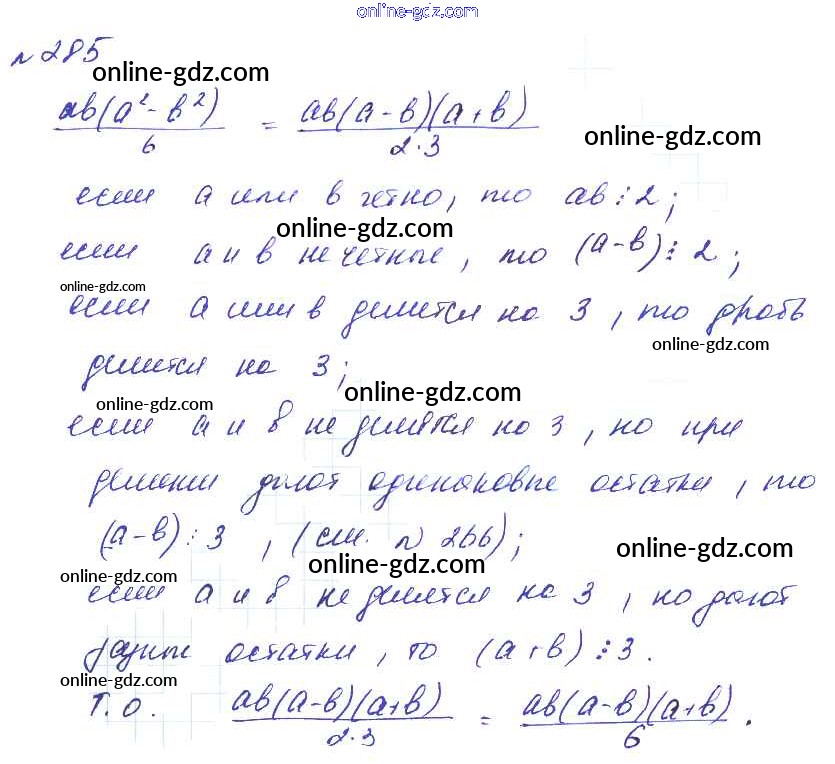 online-gdz.com
№ 285
online-gdz.com
ab(a² - b²)/6 = ab(a - b)(a + b)/2·3
online-gdz.com
если a или b четно, то ab ⋮ 2;
online-gdz.com
если a и b нечетные, то (a - b) ⋮ 2;
online-gdz.com
если a или b делится на 3, то дробь
online-gdz.com
делится на 3;
online-gdz.com
online-gdz.com
если a и b не делятся на 3, но при
делении дают одинаковые остатки, то
(a - b) ⋮ 3, (см. № 266);
online-gdz.com
online-gdz.com
online-gdz.com
если a и b не делятся на 3, но дают
разные остатки, то (a + b) ⋮ 3.
online-gdz.com
Т.О. ab(a-b)(a+b)/2·3 = ab(a-b)(a+b)/6.